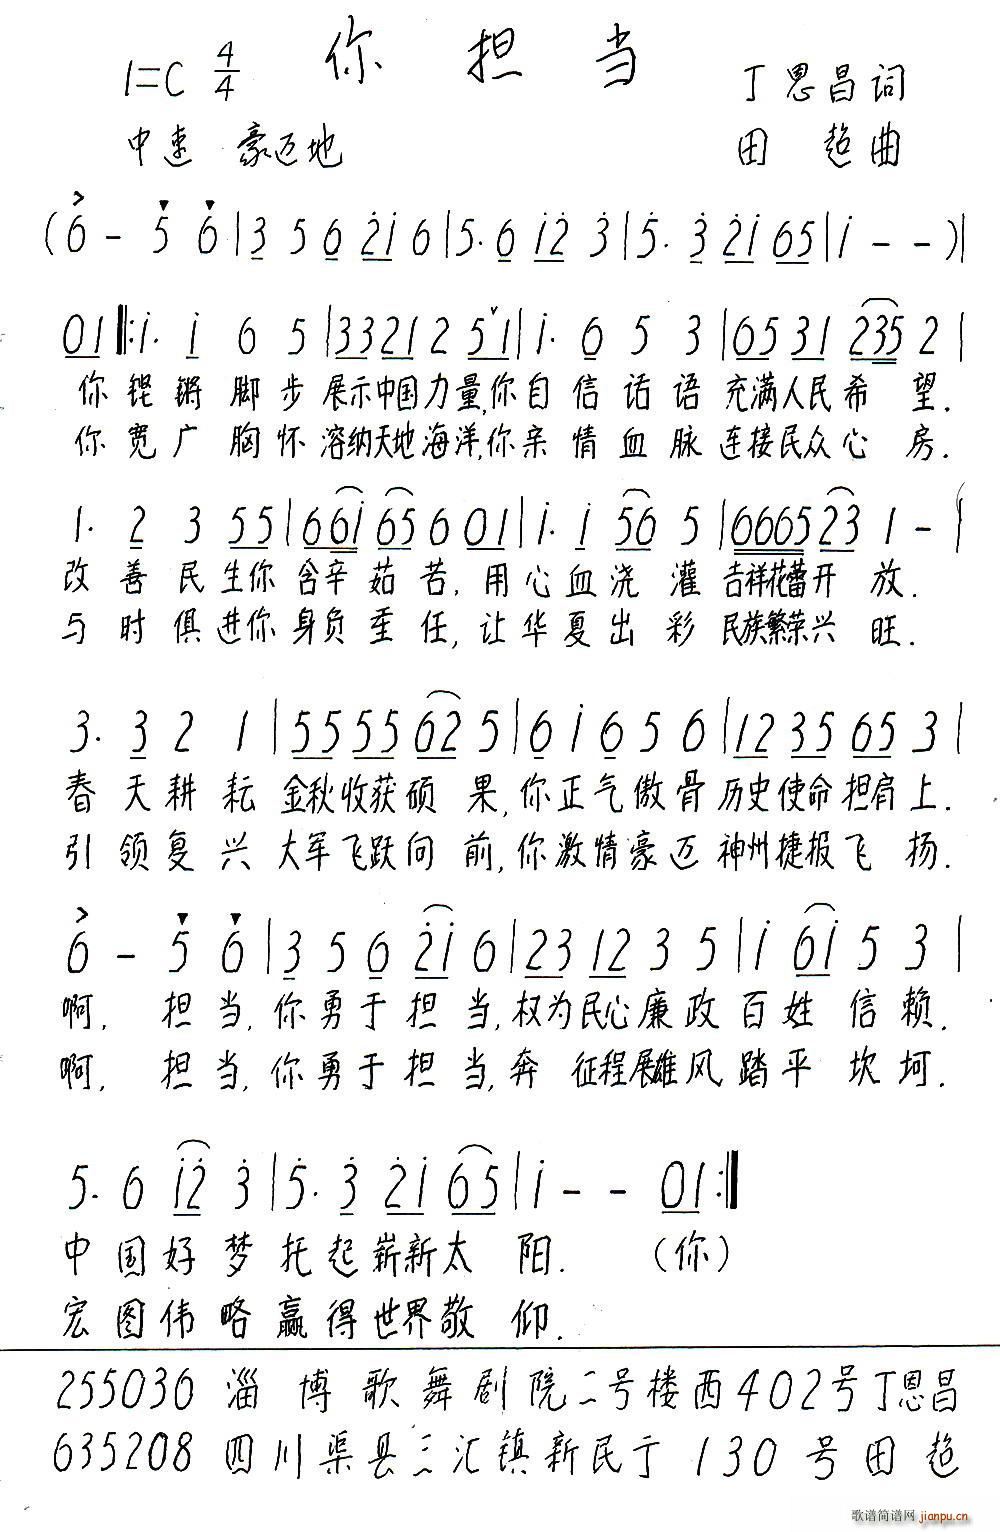 你 担 当
1=C 4/4 丁恩昌词
中速 豪迈地 田 超曲
(6 - 5 6 | 3 5 6 2i 6 | 5. 6 i2 3 | 5. 3 2i 65 | i - - ) |
01 ‖: i. i 6 5 | 33 21 2 5 1 | i. 6 5 3 | 65 31 235 2 |
你 铿 锵 脚 步 展示中国力量,你自 信 话 语 充满人民希 望.
你 宽 广 胸 怀 溶纳天地海洋,你亲 情 血 脉 连接民众心 房.
1. 2 3 55 | 66i 65 6 01 | i. i 56 5 | 6665 23 1 - |
改 善 民 生你 含辛 茹 苦, 用 心 血 浇 灌 吉祥花蕾开 放.
与 时 俱 进你 身负 重 任, 让 华 夏 出 彩 民族繁荣兴 旺.
3. 3 2 1 | 55 55 62 5 | 6 i 6 5 6 | 12 35 65 3 |
春 天 耕 耘 金秋收获硕 果,你正气傲骨 历史使命担肩上.
引 领 复 兴 大军飞跃向 前,你激情豪迈 神州捷报飞 扬.
6 - 5 6 | 3 5 6 2i 6 | 23 12 3 5 | i 6i 5 3 |
啊, 担 当,你勇于 担 当,权为民心廉政百姓 信 赖.
啊, 担 当,你勇于 担 当,奔 征程展雄风踏平 坎 坷.
5. 6 i2 3 | 5. 3 2i 65 | i - - 01 :‖
中 国 好 梦 托 起 崭新太 阳. (你)
宏 图 伟 略 赢 得 世界敬 仰.
255036 淄 博 歌 舞 剧 院 二号楼西402号丁恩昌
635208 四川 渠县三汇镇新民于 130 号 田 超
歌谱简谱网 jianpu.cn